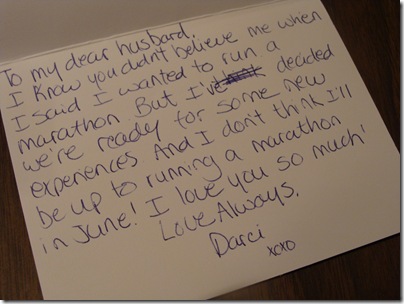 To my dear husband.
I know you didn't believe me when
I said I wanted to run a
marathon. But I've decided
we're ready for some new
experiences. And I don't think I'll
be up to running a marathon
in June! I love you so much!
Love Always,
Darci
xoxo